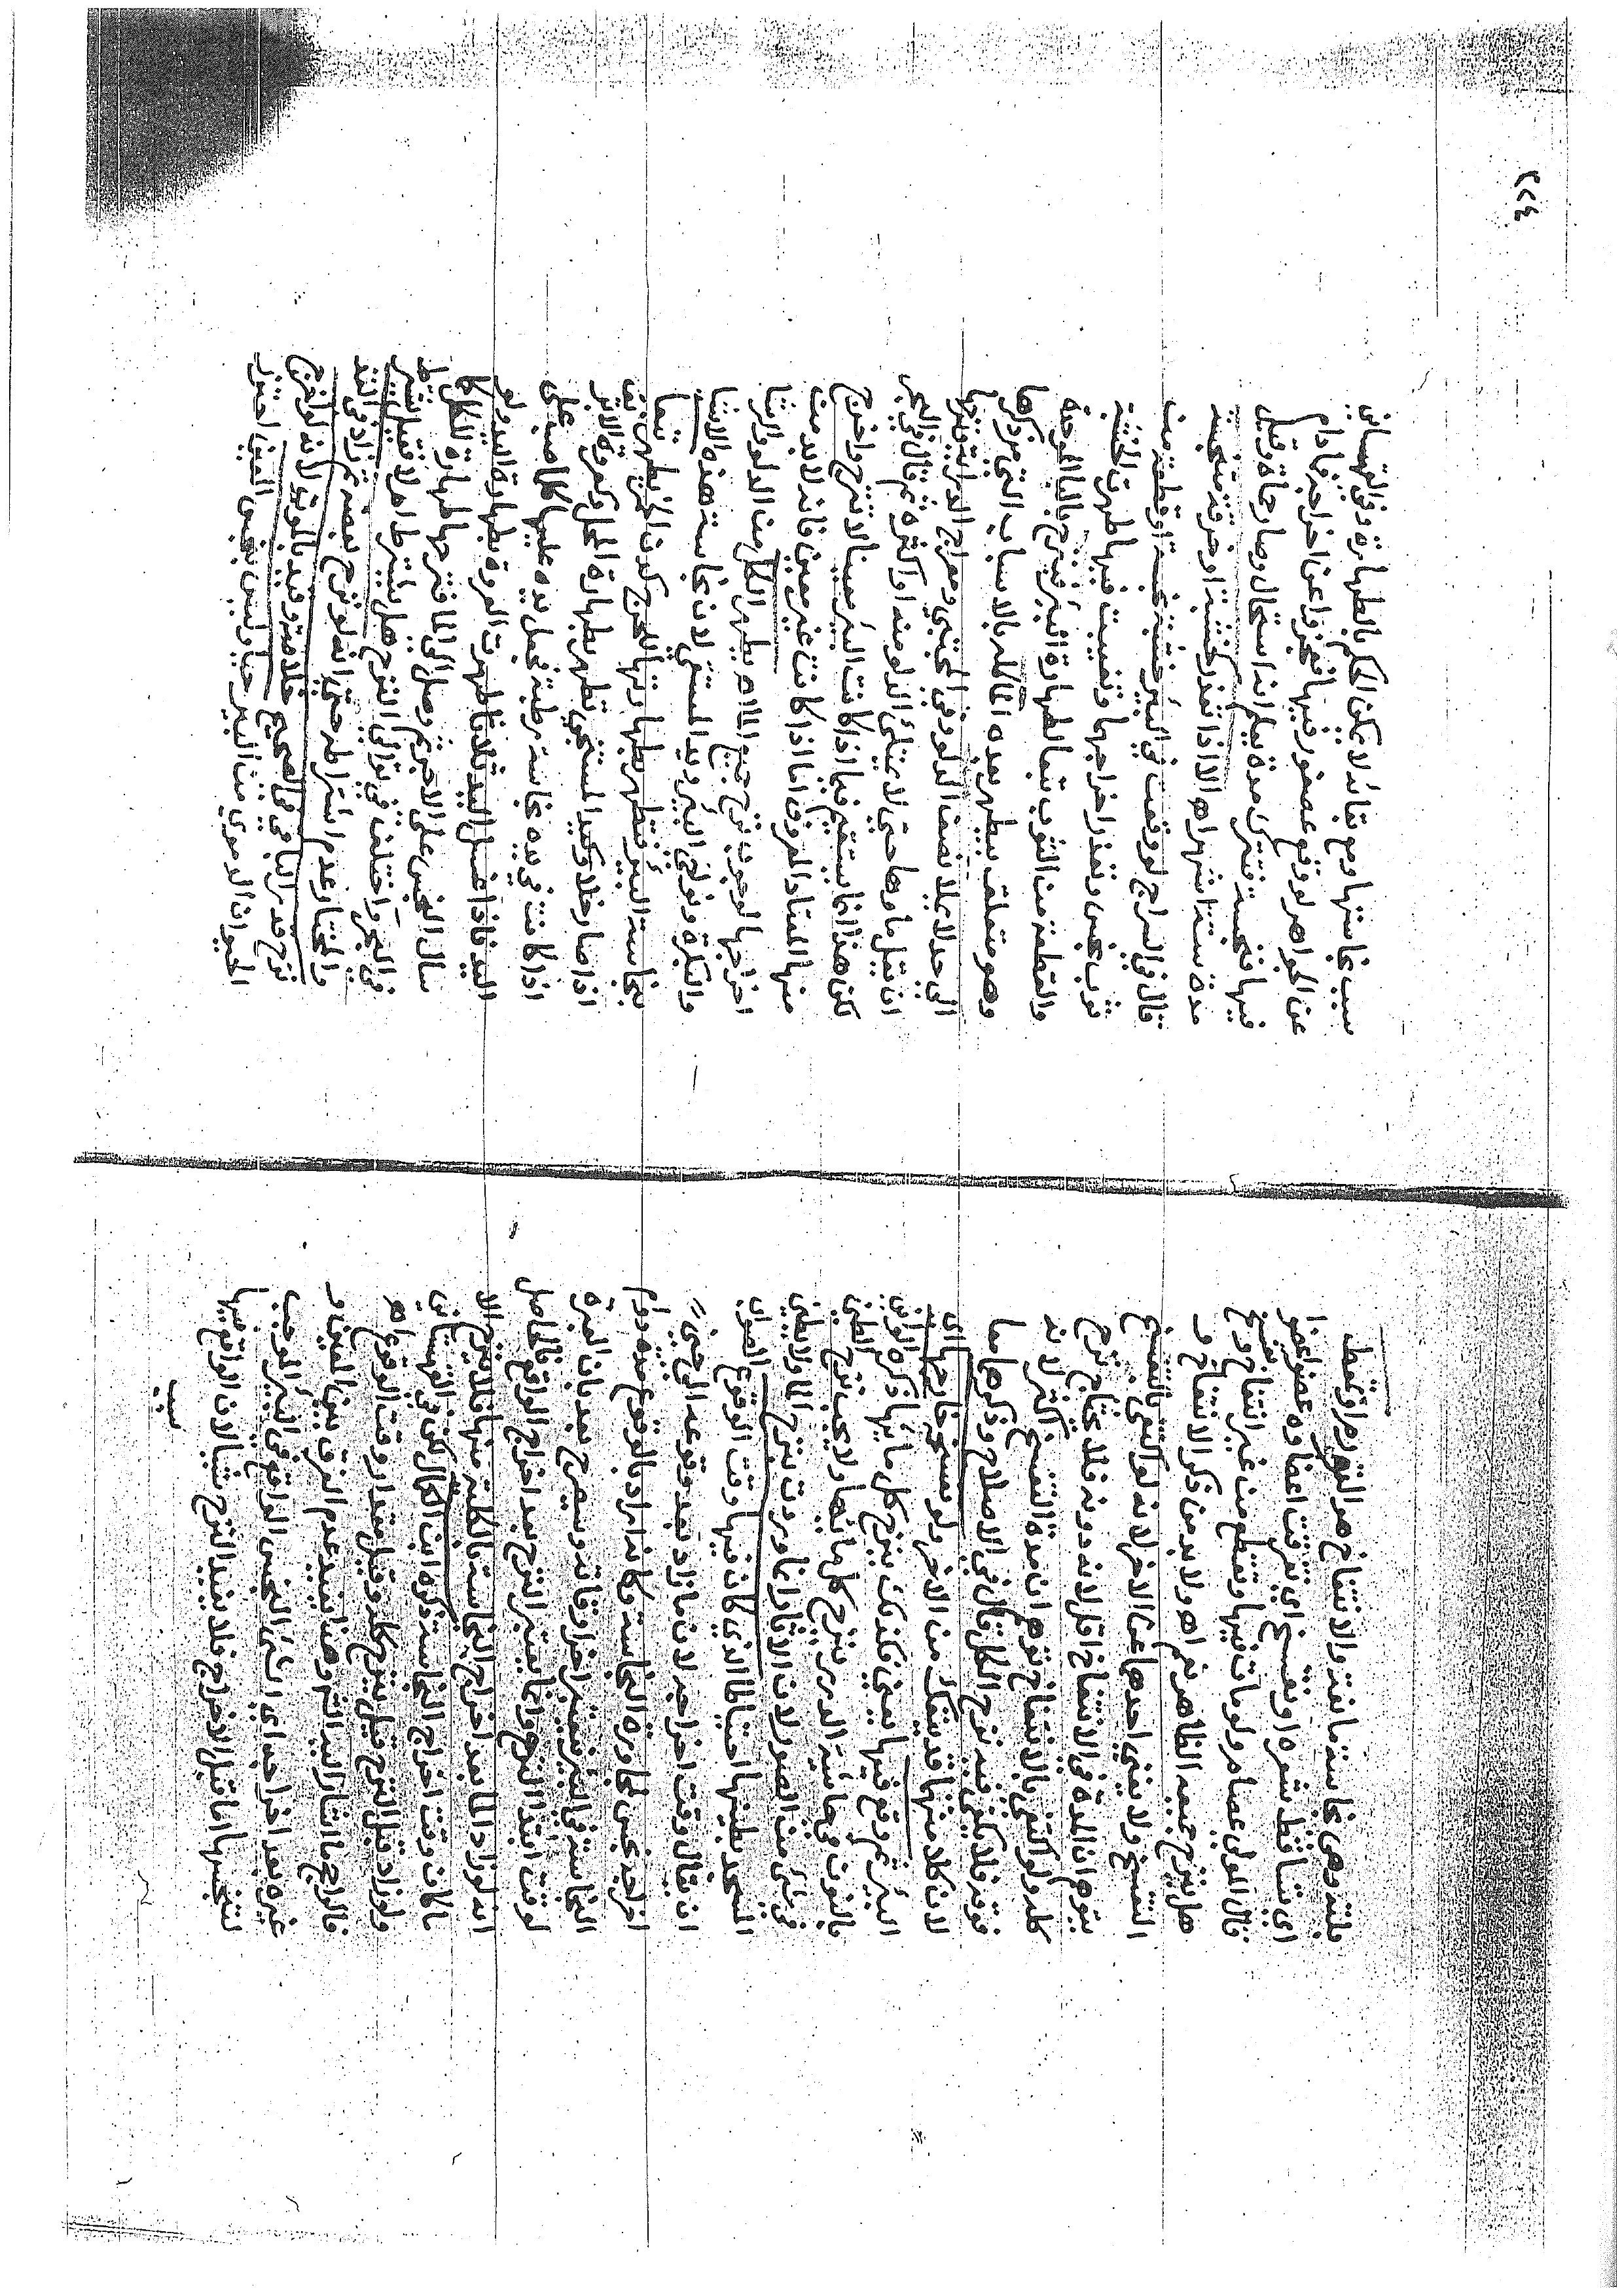 فلتة وهي نجاسة مائعة والانتفاخ هو التورم او تمعط
اي تساقط شعره او تفسخ اي تفرقت اعضاوه عضوا عضوا
قال المولى عصام ولو مات فيها وتقطع من غير انتفاخ وتفسخ
هل ينزح جميعه الظاهر نعم اه ولا بد من ذكر الانتفاخ و
التفسخ ولا يغني احدهما عن الاخر لانه لو اكتفى بالتفسخ
يتوهم ان المدة في الانتفاخ اقل لانه دونه فلا يحتاج لنزح
كله ولو اكتفى بالانتفاخ توهم ان مدة التفسخ اكثر لانه
فوقه فلا يكفي فيه نزح الكل قال في الاصلاح وذكرهما معا
لان كلا منهما قد ينفك عن الاخر ولو تفسخ خارجها اي
البئر ثم وقع فيها يعني فكذلك ينزح كل مائها ذكره الواني
بالنون في حاشية الدرر ينزح كل مائها ولا يجب نزح الطين
في شئ من الصور لان الاثار انما وردت بنزح الماء ولا يطين
المسجد بطينها احتياطا الذي كان فيها وقت الوقوع الصواب
ان يقال وقت اخراجه لان ما زاد بعد وقوعه الى حين
اخراجه نجس لمجاورة النجاسة وكانه اراد بالوقوع مدة دوام
النجاسة في البئر فيعتبر اخر اوقاته وسيصرح بعد بان العبرة
لوقت ابتداء النزح وانما يعتبر النزح بعد اخراج الواقع فالحاصل
انه لو زاد الماء بعد اخراج النجاسة بالكلية منها فلا ينزح الا
ما كان وقت اخراج النجاسة ذكره ابن الكمال لكن في القهستاني
ولو زاد قبل النزح قيل ينزح كله وقيل مقدار وقت الوقوع اه
فالراجح ما اشار اليه الشرح وهنا يفيد عدم الفرق بين المعين و
غيره بعد اخراجه اي الشئ النجس الواقع في البئر الموجب
لتنجسها اما قبل الاخراج فلا يفيد النزح شيئا لان الواقع فيها
سبب
سبب نجاستها ومع بقائه لا يمكن الحكم بالطهارة وفي القهستاني
عن الجواهر لو وقع عصفور فيها فعجزوا عن اخراجه فما دام
فيها فنجسة فتترك مدة يعلم انه استحال وصار حماة وقيل
مدة ستة اشهر اه الا اذا تعذر كخشبة او خرقة متنجسة
قال في السراج لو وقعت في البئر خشبة نجسة او قطعة من
ثوب نجس وتعذر اخراجها وتغيبت فيها طهرت الخشبة
والقطعة من الثوب تبعا لطهارة البئر فينزح بالفاء الموحدة
وهو متعلق بيطهر بعده الماء كله بالاسباب التي مر ذكرها
الى حد لا يملا نصف الدلو وفي المجتبى ومعراج الدراية نزحها
ان يقل ماوها حتى لا يمتلئ الدلو منه او اكثره ثم قال في البحر
لكن هذا انما يستقيم فيما اذا كانت البئر معينا لا تنزح واخرج
منها المقدار المعروف اما اذا كانت غير معين فانه لا بد من
اخراجها لوجوب نزح جميع الماء اه يطهر الكل من الدلو والرشا
والبكرة ونواحي البئر ويد المستقي لان نجاسة هذه الاشيا
بنجاسة البئر فتطهر بطهارتها للحرج كدن الخمر يطهر تبعا
اذا صار خلا وكيد المستنجي تطهر بطهارة المحل وكعروة الابريق
اذا كانت في يده نجاسة رطبة فجعل يده عليها كلما صب على
اليد فاذا غسل اليد ثلاثا طهرت العروة بطهارة اليد ولو
سال النجس على الاجر ثم وصل الى الماء فنزحها طهارة للكل كما
في البحر واختلف في توالي النزح هل يشترط ام لا فقيل يشترط
والمختار عدم اشتراطه حتى انه لو نزح بعضه ثم زاد في الغد
نزح قدر الباقي في الصحيح خلاصة وقيد بالموت لانه لو اخرج
الحيوان الدموي من البئر حيا وليس بنجس العين احترز